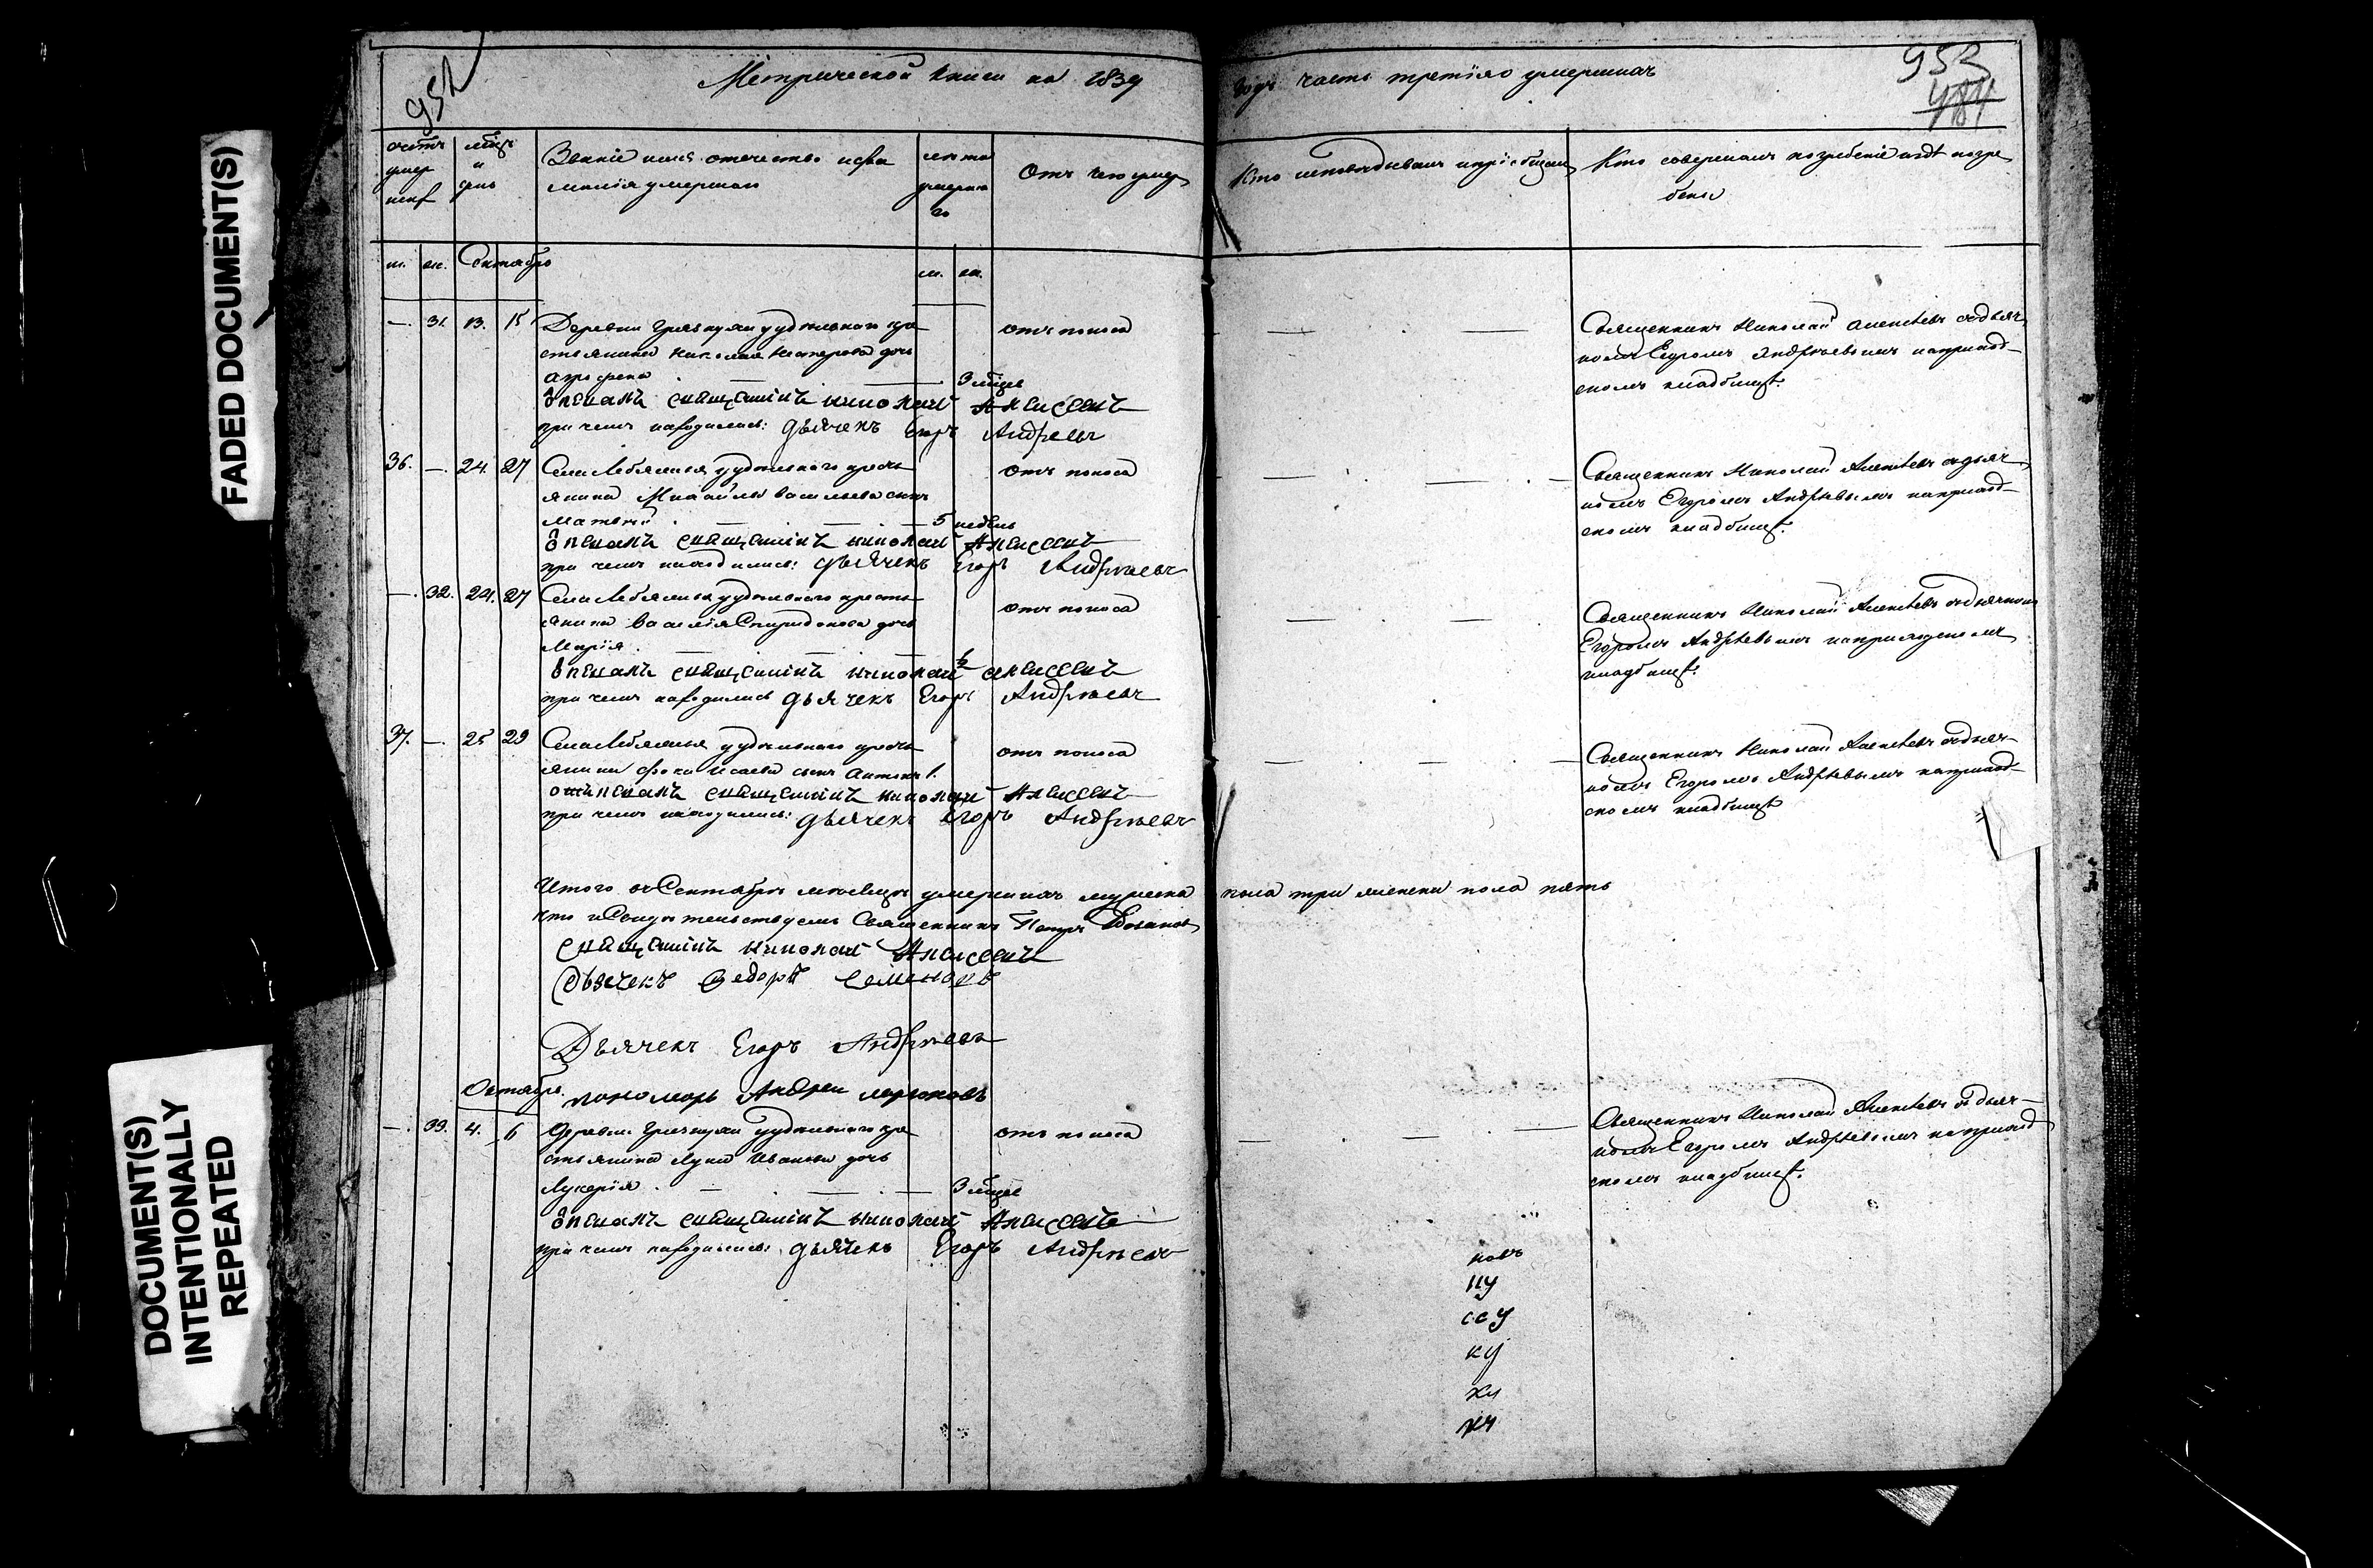 FADED DOCUMENT(S)
DOCUMENT(S)
INTENTIONALLY
REPEATED
952
Метрической книги на 1839
годъ часть третія о умершихъ
953
484
счетъ умер
мѣц и день
Званіе имя отечество и фа
милія умершаго
лѣта
умерша
го
Отъ чего умер
Кто исповѣдывалъ и пріобщалъ
Кто совершалъ погребеніе и гдѣ погре
бены
м. ж. Сентябрь
м. ж.
—. 31. 13. 15 Деревни удѣльнаго кре
стьянина Николая Нестерова дочь
Агрофена
3 мѣцев
отъ поноса
Священникъ Николай Алексѣевъ съ дьяч
комъ Егоромъ Андрѣевымъ на приход
скомъ кладбищѣ.
отпѣвалъ священникъ николай Алексеевъ
при чемъ находились: дьячекъ Егоръ Андреевъ
36. —. 24. 27 Села удѣльнаго кресть
янина Михайлы Васильева сынъ
Матвей
5 недѣль
отъ поноса
Священникъ Николай Алексѣевъ съ дьяч
комъ Егоромъ Андрѣевымъ на приход
скомъ кладбищѣ.
отпѣвалъ священникъ николай Алексеевъ
при чемъ находились: дьячекъ Егоръ Андрѣевъ
—. 32. 24. 27 Села удѣльнаго кресть
янина Василія Спиридонова дочь
Марія.
½
отъ поноса
Священникъ Николай Алексѣевъ съ дьячкомъ
Егоромъ Андрѣевымъ на приходскомъ
кладбищѣ.
отпѣвалъ священникъ николай алексеевъ
при чемъ находились дьячекъ Егоръ Андрѣевъ
37. —. 25 29 Села удѣльнаго кресть
янина Фоки Исаева сынъ Антонъ 1.
отъ поноса
Священникъ Николай Алексѣевъ съ дьяч
комъ Егоромъ Андрѣевымъ на приход
скомъ кладбищѣ
отпѣвалъ священникъ николай Алексеевъ
при чемъ находились: дьячекъ Егоръ Андрѣевъ
Итого въ Сентябрѣ мѣсяцѣ умершихъ мужеска пола три женска пола пять
что и Свидѣтельствуемъ Священникъ Петръ
Священникъ николай Алексеевъ
Дьячекъ Федоръ Семеновъ
Дьячекъ Егоръ Андрѣевъ
Октябрь. пономарь Андреи
—. 33. 4. 6 деревни удѣльнаго кре
стьянина Луки Иванова дочь
Лукерія.
3 мѣцев
отъ поноса
Священникъ Николай Алексѣевъ съ дьяч
комъ Егоромъ Андрѣевымъ на приход
скомъ кладбищѣ.
отпѣвалъ священникъ николай Алексеевъ
при чемъ находились: дьячекъ Егоръ Андрѣевъ
новъ
ну
ссу
ку